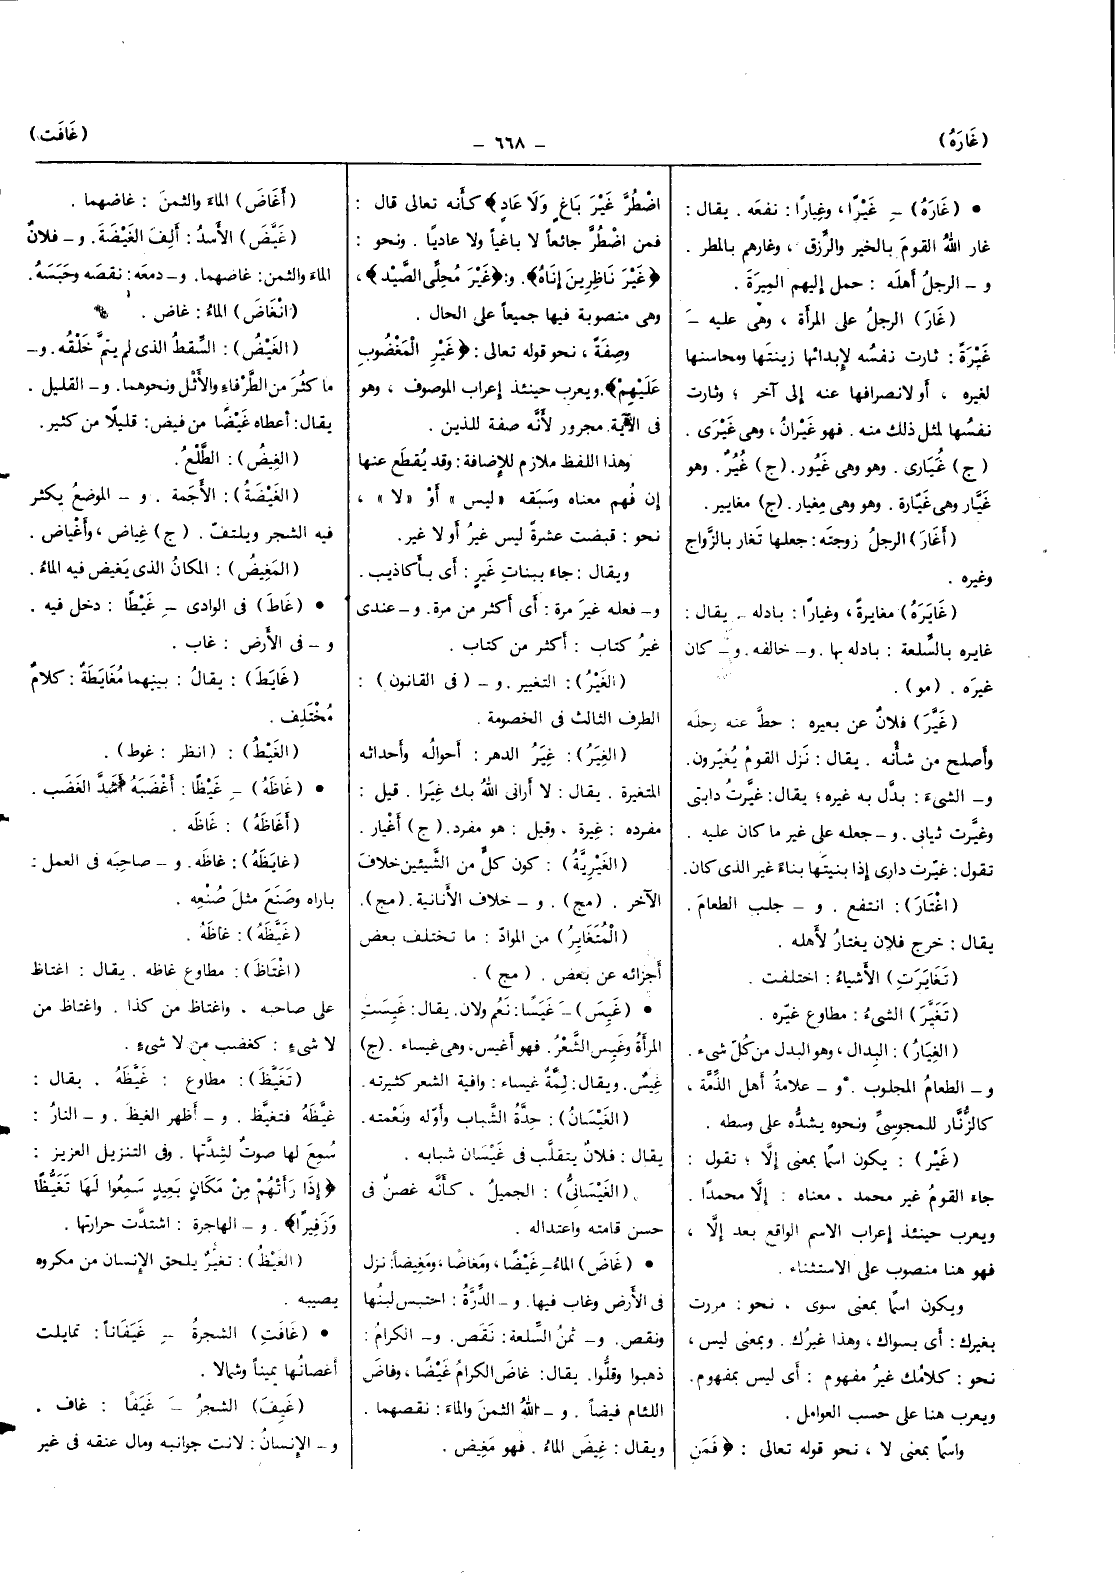 (غَارَهُ)
– ٦٦٨ –
(غَافَت)
• (غَارَهُ) ـِ غَيْرًا، وغِيارًا: نفعَه. يقال:
غار اللهُ القومَ بالخير والرِّزق، وغارهم بالمطر.
و ــ الرجلُ أهلَه : حمل إليهم المِيرَة .
(غَارَ) الرجلُ على المرأة ، وهى عليه ـَ
غَيْرَةً : ثارت نفسُه لإبدائها زينتَها ومحاسنها
لغيره ، أو لانصرافها عنه إلى آخر ؛ وثارت
نفسُها لمثل ذلك منه. فهو غَيْرانُ ، وهى غَيْرَى .
(ج) غُيَارى . وهو وهى غَيُور. (ج) غُيُرٌ. وهو
غَيَّار وهى غَيّارة . وهو وهى مِغيار. (ج) مغايير .
(أَغَارَ) الرجلُ زوجتَه : جعلها تَغار بالزَّواج
وغيره .
(غَايَرَهُ) مغايرةً ، وغيارًا : بادله . يقال :
غايره بالسِّلعة : بادله بها . و ــ خالفه . و ــ كان
غيرَه . (مو) .
(غَيَّرَ) فلانٌ عن بعيره : حطَّ عنه رحلَه
وأصلح من شأْنه . يقال : نَزل القومُ يُغيّرون.
و ــ الشىءَ : بدَّل به غيره ؛ يقال: غيَّرتُ دابتى
وغيَّرت ثيابى. و ــ جعله على غير ما كان عليه .
تقول: غيّرت دارى إذا بنيتَها بناءً غير الذى كان.
(اغْتَارَ) : انتفع . و ــ جلب الطعامَ .
يقال : خرج فلان يغتارُ لأَهله .
(تَغَايَرَتِ) الأَشياءُ : اختلفت .
(تَغَيَّرَ) الشىءُ : مطاوع غيّره .
(الغِيَارُ) : البِدال ، وهو البدل من كُلّ شىء .
و ــ الطعامُ المجلوب . و ــ علامةُ أهل الذِّمَّة ،
كالزُّنَّار للمجوسىّ ونحوه يشدُّه على وسطه .
(غَيْر) : يكون اسمًا بمعنى إلَّا ؛ تقول :
جاء القومُ غير محمد ، معناه : إلَّا محمدًا .
ويعرب حينئذ إعراب الاسم الواقع بعد إلَّا ،
فهو هنا منصوب على الاستثناء .
ويكون اسمًا بمعنى سوى ، نحو : مررت
بغيرك : أى بسواك، وهذا غيرُك. وبمعنى ليس ،
نحو : كلامُك غيرُ مفهوم : أى ليس بمفهوم.
ويعرب هنا على حسب العوامل .
واسمًا بمعنى لا ، نحو قوله تعالى : ﴿فَمَنِ
اضْطُرَّ غَيْرَ بَاغٍ وَلَا عَادٍ﴾ كأَنه تعالى قال :
فمن اضْطُرَّ جائعاً لا باغياً ولا عاديًا . ونحو :
﴿غَيْرَ نَاظِرِينَ إِنَاهُ﴾. و:﴿غَيْرَ مُحِلِّى الصَّيْدِ﴾ ،
وهى منصوبة فيها جميعاً على الحال .
وصِفَةً ، نحو قوله تعالى: ﴿غَيْرِ الْمَغْضُوبِ
عَلَيْهِمْ﴾. ويعرب حينئذ إعراب الموصوف ، وهو
فى الآية مجرور لأَنَّه صفة للذين .
وهذا اللفظ ملازم للإضافة: وقد يُقطَع عنها
إن فُهم معناه وسَبَقه «ليس» أَوْ «لا» ،
نحو : قبضت عشرةً ليس غيرُ أو لا غير.
ويقال : جاء ببناتِ غَيرٍ : أى بأَكاذيب .
و ــ فعله غيرَ مرة : أى أكثر من مرة. و ــ عندى
غيرُ كتاب : أكثر من كتاب .
(الغَيْرُ) : التغيير . و ــ ( فى القانون ) :
الطرف الثالث فى الخصومة .
(الغِيَرُ) : غِيَرُ الدهر : أحوالُه وأحداثه
المتغيرة . يقال : لا أرانى اللهُ بك غِيَرا . قيل :
مفرده : غِيرة ، وقيل : هو مفرد. (ج) أغْيار .
(الغَيْرِيَّةُ) : كون كلٍّ من الشَّيئين خلافَ
الآخر . (مج) . و ــ خلاف الأَنانية. (مج).
(الْمُتَغَايِرُ) من الموادّ : ما تختلف بعض
أجزائه عن بعض . (مج) .
• (غَيِسَ) ـَ غَيَسًا: نَعُم ولان. يقال: غَيِسَتِ
المرأةُ وغَيِس الشَّعْرُ. فهو أغيس، وهى غيساء . (ج)
غِيسٌ. ويقال: لِمَّةٌ غيساء : وافية الشعر كثيرته.
(الغَيْسَانُ) : حِدَّةُ الشَّباب وأوّله ونَعْمته.
يقال : فلانٌ يتقلَّب فى غَيْسَان شبابه .
(الغَيْسَانىُّ) : الجميلُ ، كأنَّه غصنٌ فى
حسن قامته واعتداله .
• (غَاضَ) الماءُ ـِ غَيْضًا ، ومَغاضًا ، ومَغِيضاً: نزل
فى الأَرض وغاب فيها. و ــ الدِّرَّةُ : احتبس لبنُها
ونقص. و ــ ثمنُ السِّلعة: نَقَص. و ــ الكرامُ :
ذهبوا وقلُّوا. يقال: غاضَ الكرامُ غَيْضًا ، وفاضَ
اللئام فيضاً . و ــ اللهُ الثمنَ والماءَ : نقصهما .
ويقال : غِيضَ الماءُ . فهو مَغِيض .
(أَغَاضَ) الماءَ والثمنَ : غاضهما .
(غَيَّضَ) الأَسدُ : أَلِفَ الغَيْضَةَ. و ــ فلانٌ
الماءَ والثمن: غاضهما. و ــ دمعَه: نقصَه وحَبَسَهُ.
(انْغَاضَ) الماءُ : غاض .
(الغَيْضُ) : السِّقطُ الذى لم يتمَّ خَلْقُه. و ــ
ما كثُرَ من الطَّرْفاءِ والأَثْل ونحوهما. و ــ القليل .
يقال: أعطاه غَيْضًا من فيض: قليلًا من كثير.
(الغِيضُ) : الطَّلْعُ.
(الغَيْضَةُ) : الأَجَمة . و ــ الموضعُ يكثر
فيه الشجر ويلتفّ . (ج) غِياض ، وأَغْياض .
(المَغِيضُ) : المكانُ الذى يَغيض فيه الماءُ.
• (غَاطَ) فى الوادى ـِ غَيْطًا : دخل فيه .
و ــ فى الأَرض : غاب .
(غَايَطَ) : يقالُ : بينهما مُغَايَطَةٌ : كلامٌ
مُخْتَلِف .
(الغَيْطُ) : (انظر : غوط) .
• (غَاظَهُ) ـِ غَيْظًا : أَغْضَبَهُ أَشدَّ الغَضَب .
(أَغَاظَهُ) : غَاظَه .
(غَايَظَهُ) : غاظَه. و ــ صاحِبَه فى العمل :
باراه وصَنَعَ مثلَ صُنْعِه .
(غَيَّظَهُ) : غاظَهُ .
(اغْتَاظَ) : مطاوع غاظه . يقال : اغتاظ
على صاحبه ، واغتاظ من كذا . واغتاظ من
لا شىءٍ : كغضب من لا شىءٍ .
(تَغَيَّظَ) : مطاوع : غَيَّظَهُ . يقال :
غيَّظَهُ فتغيَّظ . و ــ أظهر الغيظَ . و ــ النارُ :
سُمِعَ لها صوتٌ لشِدَّتها . وفى التنزيل العزيز :
﴿إِذَا رَأَتْهُمْ مِنْ مَكَانٍ بَعِيدٍ سَمِعُوا لَهَا تَغَيُّظًا
وَزَفِيرًا﴾. و ــ الهاجرة : اشتدَّت حرارتها .
(الغَيْظُ) : تغيُّرٌ يلحق الإنسان من مكروه
يصيبه .
• (غَافَتِ) الشجرةُ ـِ غَيَفَاناً : تمايلت
أغصانُها يميناً وشمالا .
(غَيِفَ) الشجرُ ـَ غَيَفًا : غاف .
و ــ الإنسانُ : لانت جوانبه ومال عنقه فى غير